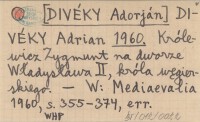 [DIVÉKY Adorján] DI-
VÉKY Adrian 1960. Króle-
wicz Zygmunt na dworze
Władysława II, króla węgier-
skiego. – W: Mediaevalia
1960, s. 355–374, err.
WHF